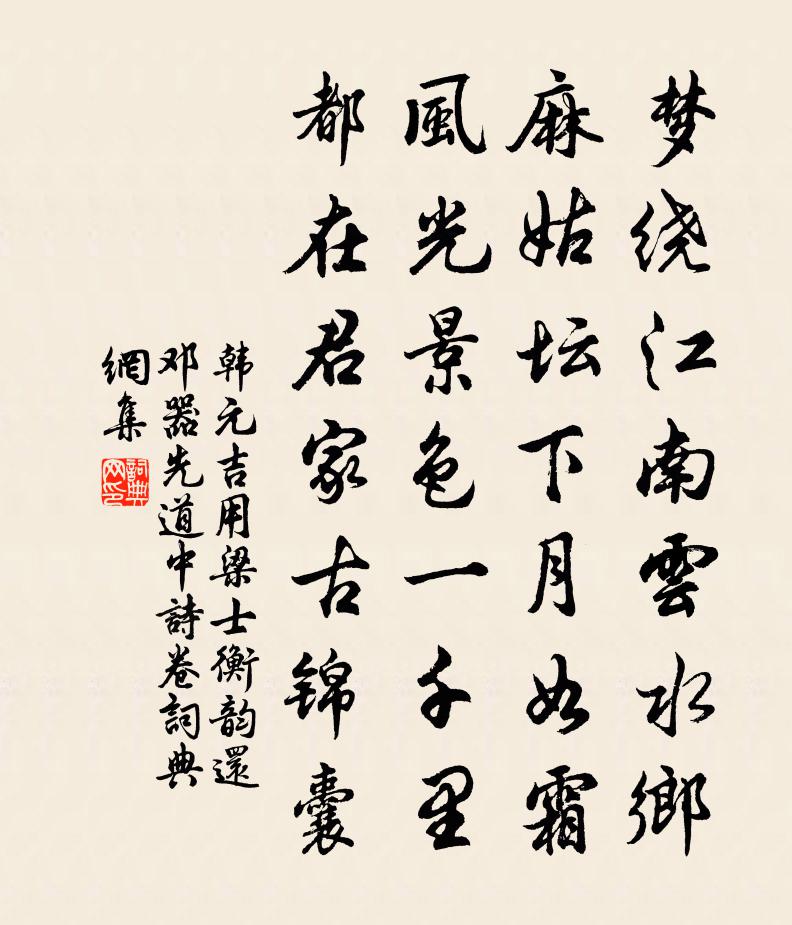 梦绕江南雲水鄉
麻姑坛下月如霜
風光景色一千里
都在君家古锦囊
韩元吉用梁士衡韵還
邓器先道中詩卷詞典
網集
詞典网印